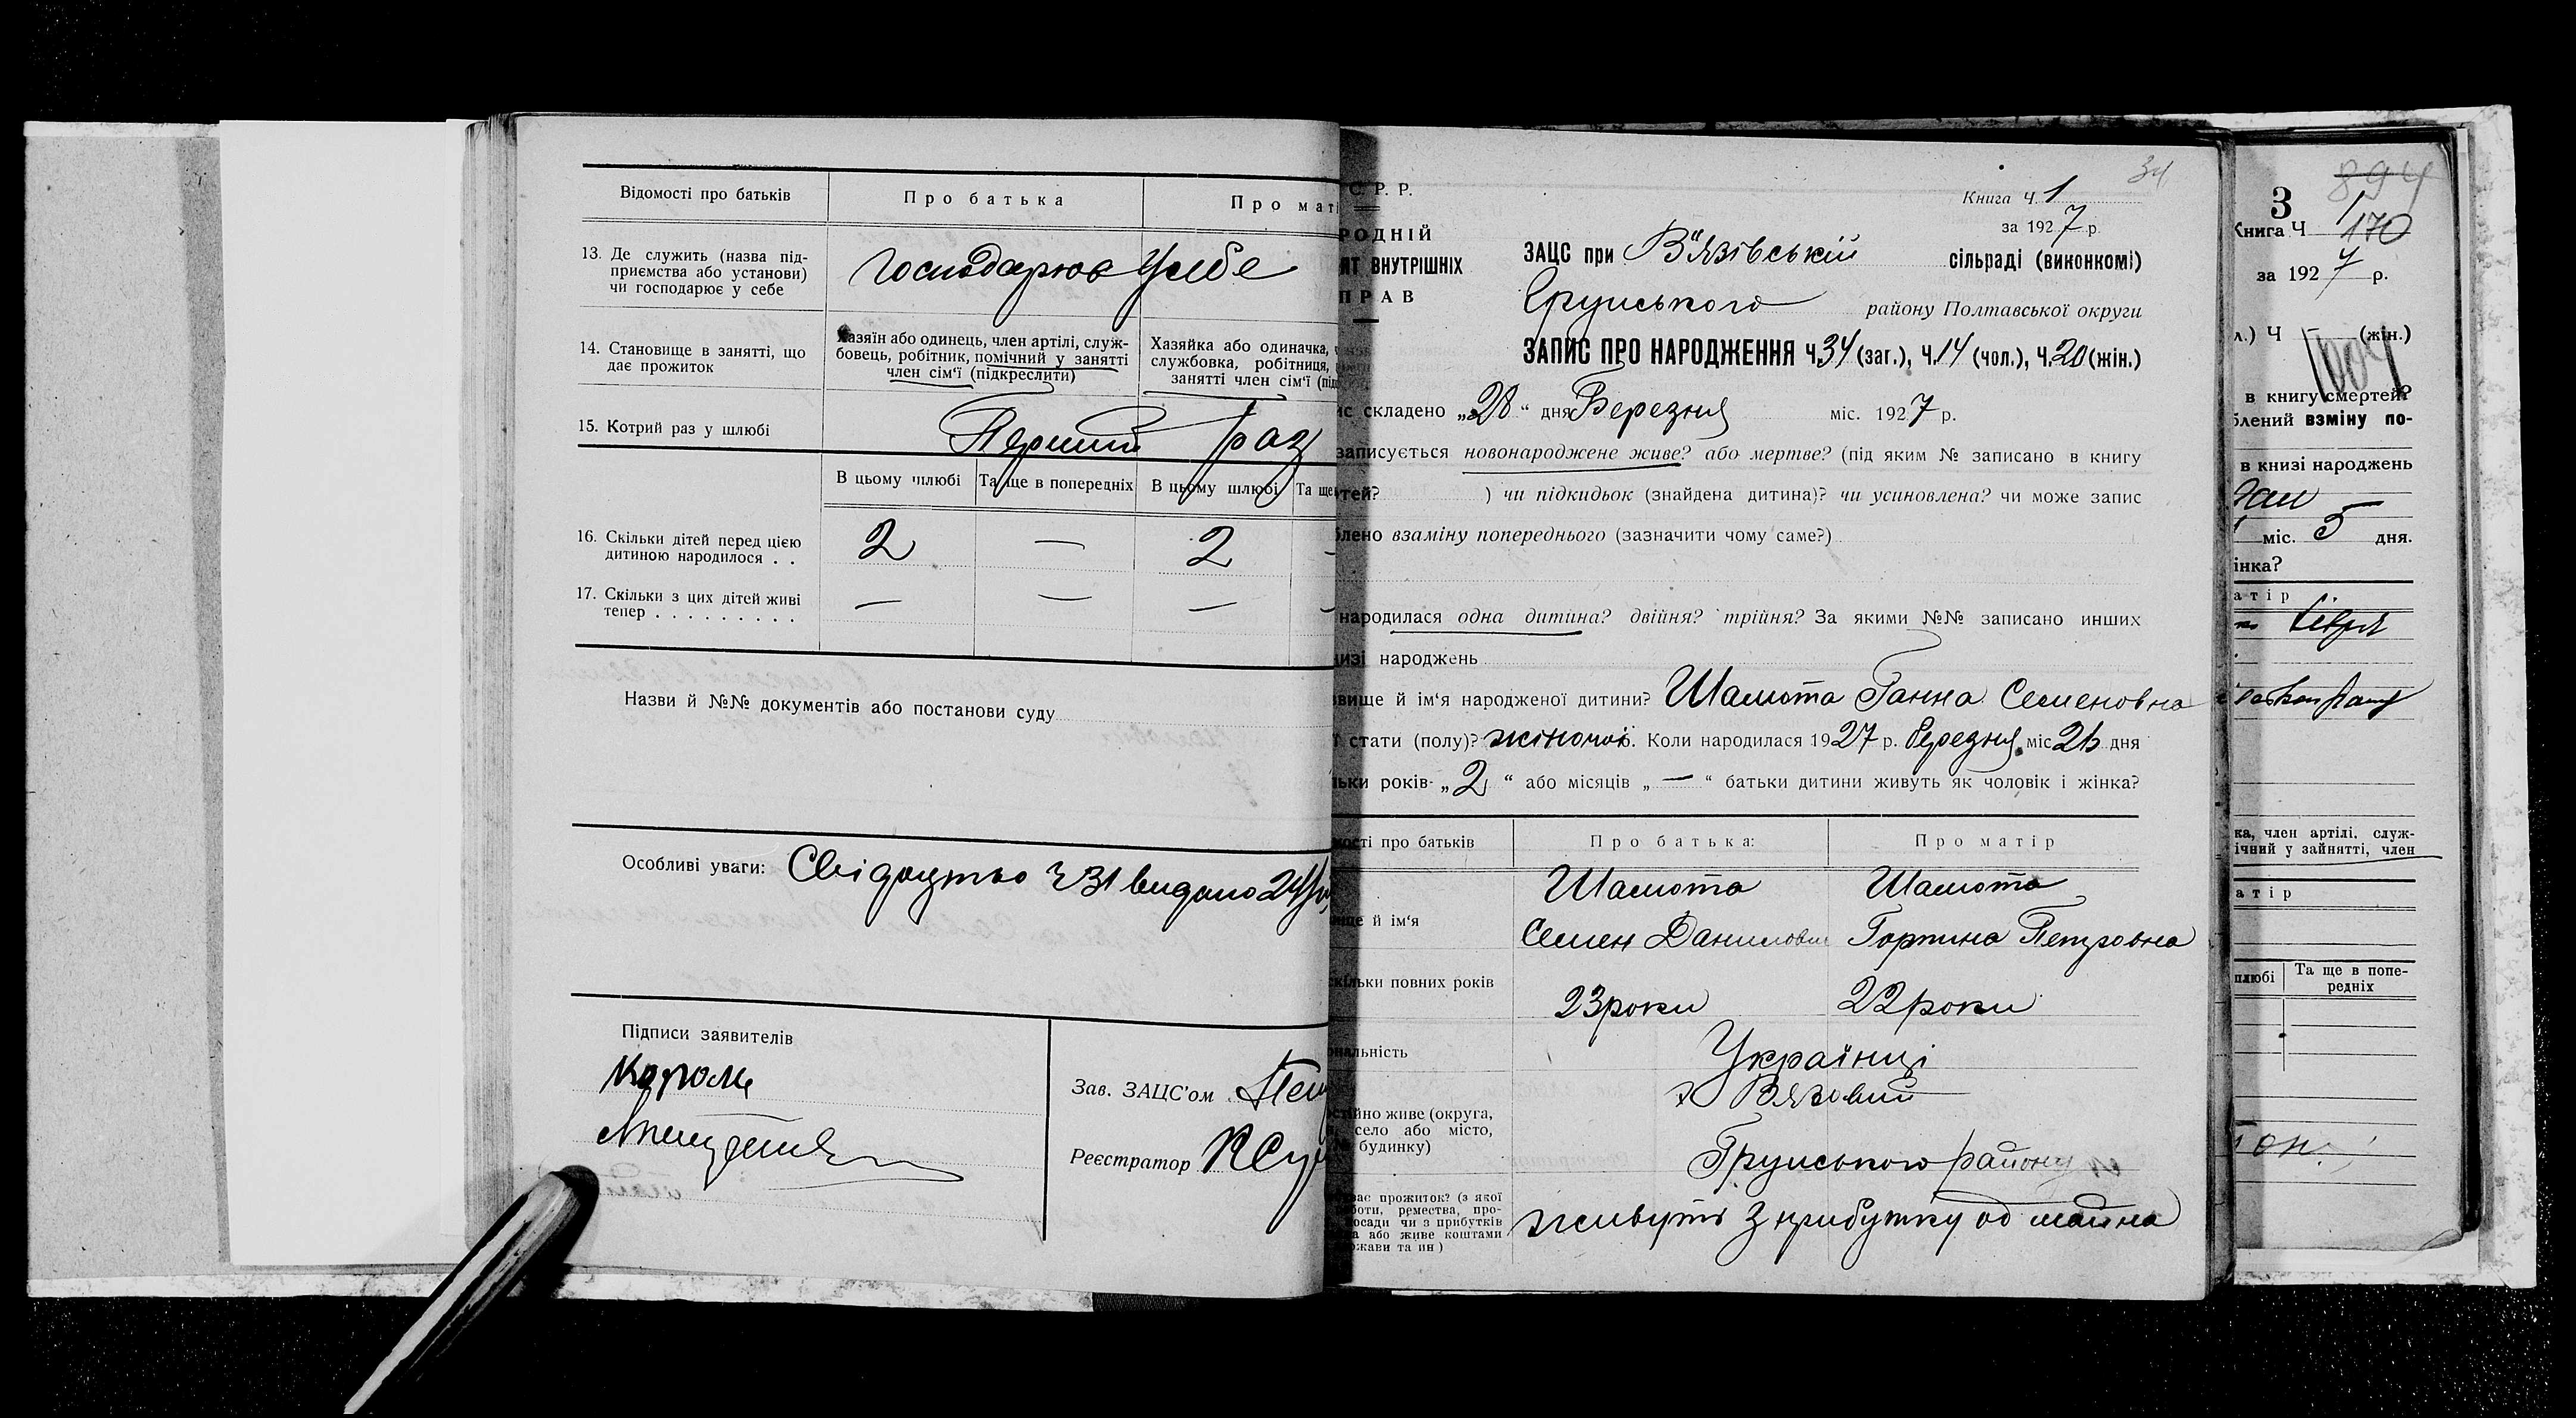 Відомості про батьків
Про батька
Про маті
13. Де служить (назва під-
приємства або установи)
чи господарює у себе
Господарює у себе
14. Становище в занятті, що
дає прожиток
Хазяїн або одинець, член артілі, служ-
бовець, робітник, помічний у занятті
член сім'ї (підкреслити)
Хазяйка або одиначка,
службовка, робітниця,
занятті член сім'ї (під
15. Котрий раз у шлюбі
Перший раз
В цьому шлюбі
Та ще в попередніх
В цьому шлюбі
Та ще
16. Скільки дітей перед цією
дитиною народилося . .
2 — 2
17. Скільки з цих дітей живі
тепер . . . . . . . . .
— — —
Назви й №№ документів або постанови суду
Особливі уваги: Свідоцтво Ч 31 видано
Підписи заявителів
Король
Зав. ЗАЦС'ом
Реєстратор
34
С. Р. Р.
РОДНІЙ
ЯТ ВНУТРІШНІХ
ПРАВ
Книга Ч. 1
за 1927 р.
ЗАЦС при В"язівській сільраді (виконкомі)
Грунського району Полтавської округи
ЗАПИС ПРО НАРОДЖЕННЯ Ч. 34 (заг.), Ч. 14 (чол.), Ч. 20 (жін.)
ис складено „28“ дня Березня міс. 1927 р.
записується новонароджене живе? або мертве? (під яким № записано в книгу
тей? ) чи підкидьок (знайдена дитина)? чи усиновлена? чи може запис
блено взаміну попереднього (зазначити чому саме?)
народилася одна дитина? двійня? трійня? За якими №№ записано инших
изі народжень
вище й ім'я народженої дитини? Шамота Ганна Семеновна
ї стати (полу)? жіночої. Коли народилася 1927 р. березня міс 26 дня
льки років „2“ або місяців „—“ батьки дитини живуть як чоловік і жінка?
мості про батьків
Про батька:
Про матір
ище й ім'я
Шамота
Шамота
Семен Данилович
Горпина Петровна
скільки повних років
23 роки
22 роки
ональність
Українці
стійно живе (округа,
село або місто,
будинку)
х Вязовий
Грунського району
ває прожиток? (з якої
боти, ремества, про-
осади чи з прибутків
а або живе коштами
жави та ин)
живуть з прибутку од майна
894
3
Книга Ч 1
170
за 1927 р.
л.) Ч (жін.)
в книгу смертей?
блений взміну по-
в книзі народжень
міс. 5 дня.
інка?
атір
ка, член артілі, служ-
ічний у зайнятті, член
атір
шлюбі
Та ще в попе-
редніх